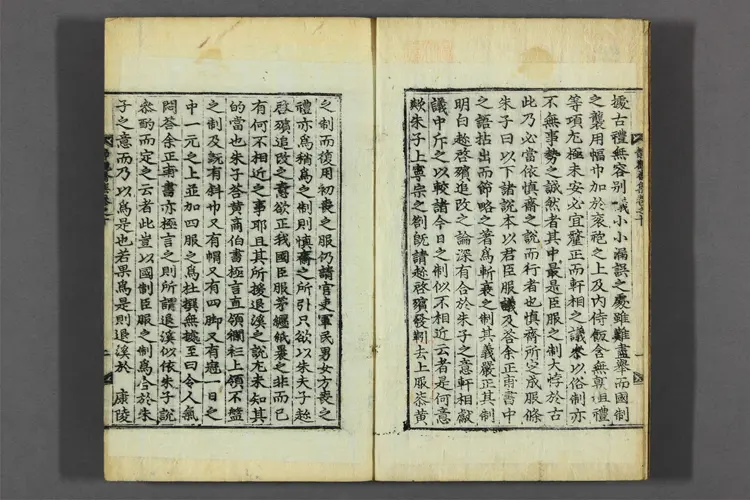 據古禮無容別議小小漏誤之處雖難盡擧而國制
之襲用幅巾加於袞袍之上及內侍飯含無朝祖禮
等項尤極未安必宜釐正而軒相之議叅以俗制亦
不無事勢之誠然者其中最是臣服之制大悖於古
此乃必當依愼齋之說而行者也愼齋所定成服條
朱子曰以下諸說本以君臣服議及答余正甫書中
之語拈出而節略之著爲斬衰之制其義嚴正其制
明白趁啓殯追改之論深有合於朱子之意軒相獻
議中斥之以較諸今日之制似不相近云者是何意
歟朱子上寧宗之劄旣請趁啓殯發靷去上服漆黃
之制而復用初喪之服仍請官吏軍民男女方喪之
禮亦爲稍爲之制則愼齋之所引只欲以朱夫子趁
啓殯追改之意欲正我國臣服等纏紙裹之非而已
有何不相近之事耶且其所援退溪之說尤未知其
的當也朱子答黃商伯書極言直領襴衫上領不盤
之制及說有斜巾又有帽又有四脚又有冠一日之
中一元之上並加四服之爲杜撰無據至曰令人氣
問答余正甫書亦極言之則所謂退溪似依朱子說
叅酌而定之云者此豈以國制臣服之制爲合於朱
子之意而乃以爲是也若果爲是則退溪於 康陵